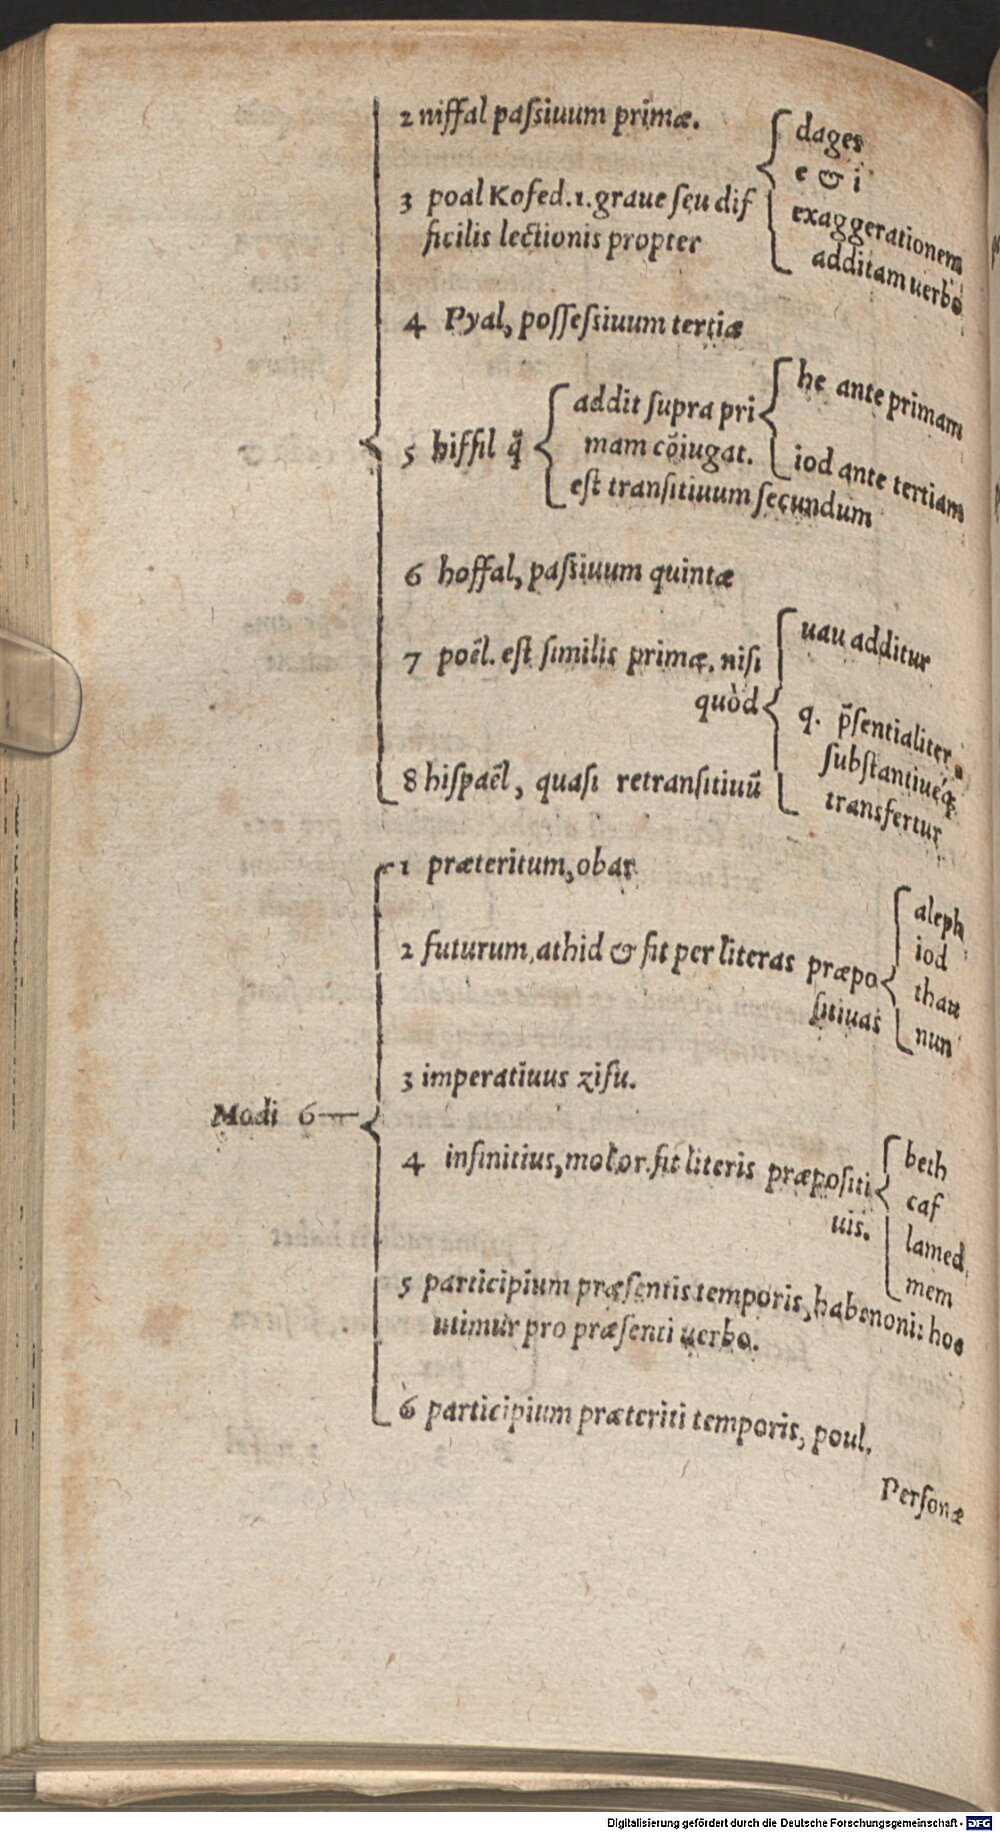 2 niffal paſsiuum primæ.
3 poal Kofed.1.graue ſeu dif
ficilis lectionis propter
dages
e & i
exaggerationem
additam uerbo
4 Pyal, poſſeſsiuum tertiæ
5 hiffil q̃
addit ſupra pri
mam cõiugat.
he ante primam
iod ante tertiam
eſt tranſitiuum ſecundum
6 hoffal, paſsiuum quintæ
7 poẽl. eſt ſimilis primæ, niſi
quòd
uau additur
q. p̃ſentialiter
ſubſtantiuéq;
transfertur
8 hiſpaẽl, quaſi retranſitiuũ
Modi 6
1 præteritum, obar
2 futurum, athid & fit per literas præpo
ſitiuas
aleph
iod
thau
nun
3 imperatiuus zifu.
4 infinitius, mokor. fit literis præpoſiti
uis.
beth
caf
lamed
mem
5 participium præſentis temporis, habenoni: hoc
utimur pro præſenti uerbo.
6 participium præteriti temporis, poul.
Perſonæ
Digitalisierung gefördert durch die Deutsche Forschungsgemeinschaft - DFG